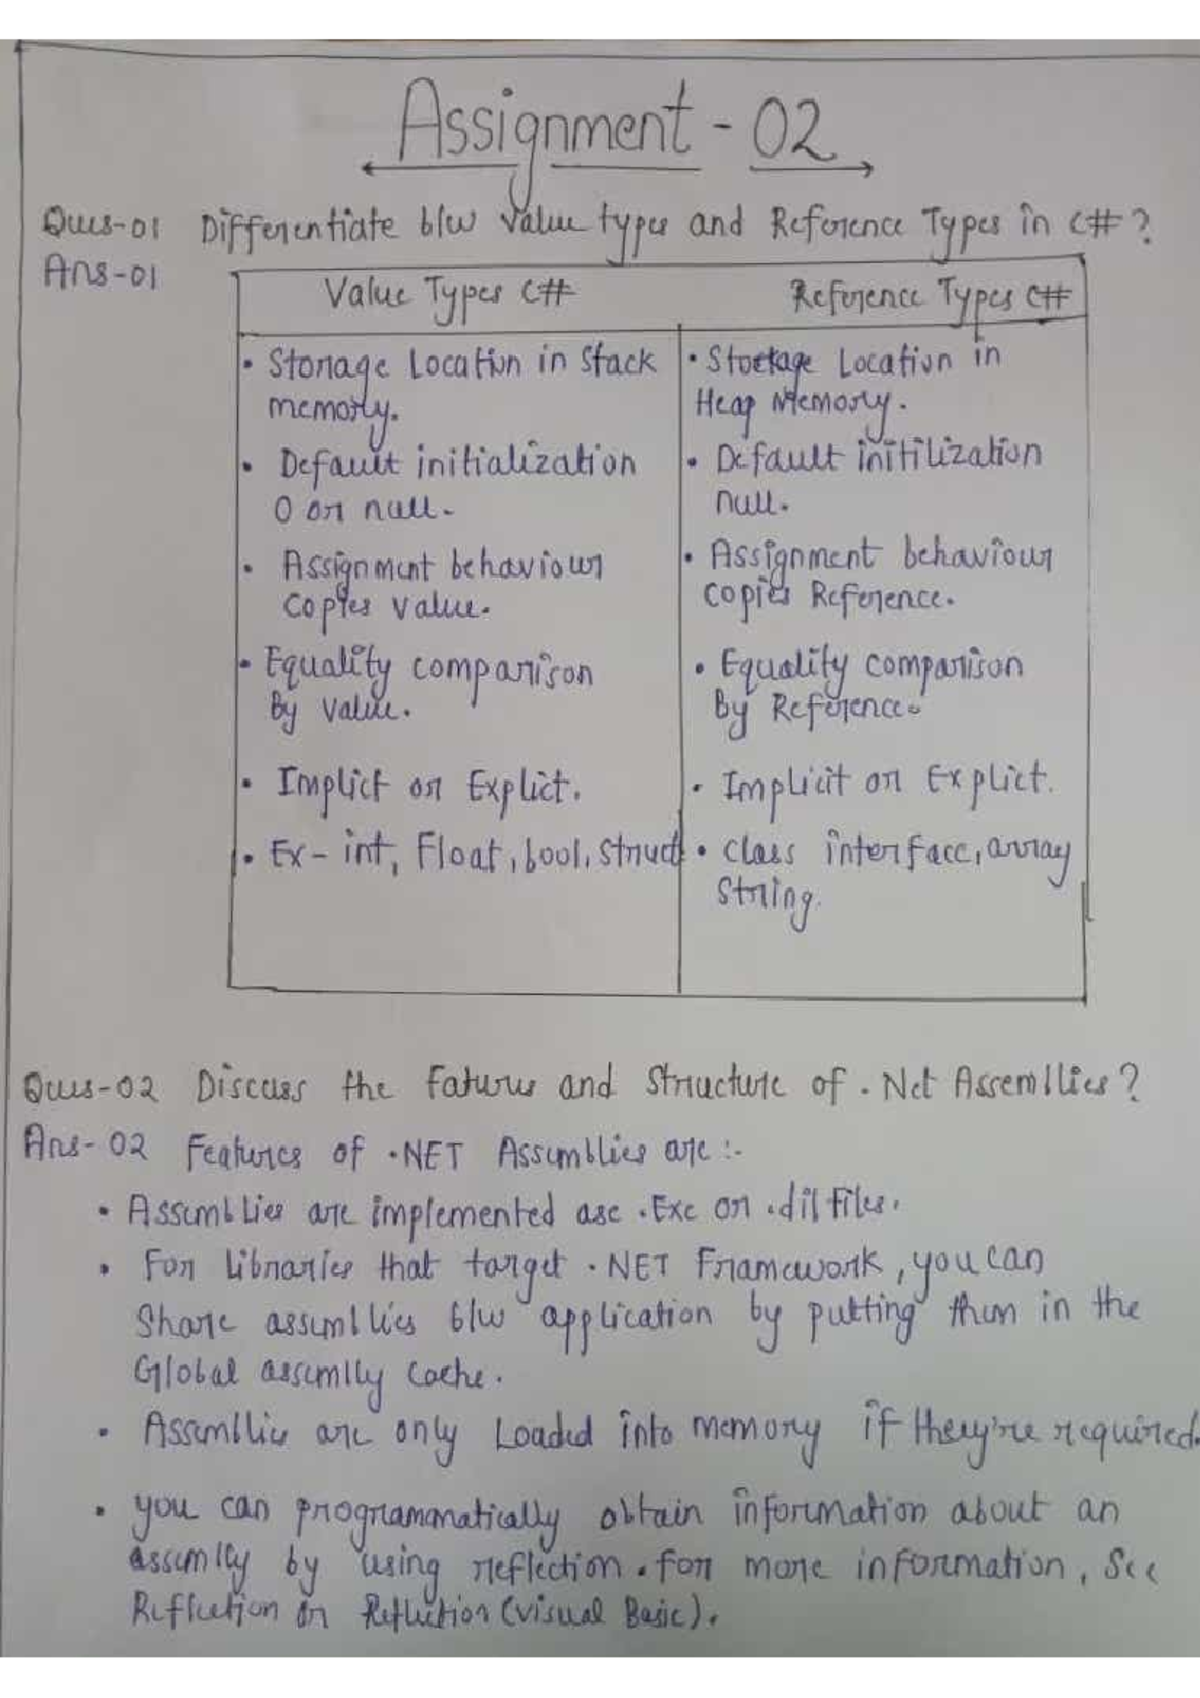 Assignment - 02
Ques-01 Differentiate b/w Value types and Reference Types in C#?
Ans-01
Value Types C#
Reference Types C#
• Storage Location in Stack
memory.
• Default initialization
0 or null.
• Assignment behaviour
Copies Value.
• Equality comparison
By Value.
• Implict or Explict.
• Ex- int, Float, bool, Struct
• Stoctage Location in
Heap Memory.
• Default initilization
null.
• Assignment behaviour
copies Reference.
• Equality comparison
By Reference.
• Implicit or Explict.
• Class interface, array
String.
Ques-02 Discuss the Faturus and Structure of .Net Assemllies?
Ans-02 Features of .NET Assemblies are :-
• Assemblies are implemented ase .Exe or .dil Files.
• For libraries that target .NET Framework, you can
Share assemllies b/w application by putting them in the
Global assemlly Cache.
• Assemllies are only Loaded into memory if they're required.
• you can programmatically obtain information about an
assemlly by using reflection. for more information, See
Reflection or Reflection (visual Basic).